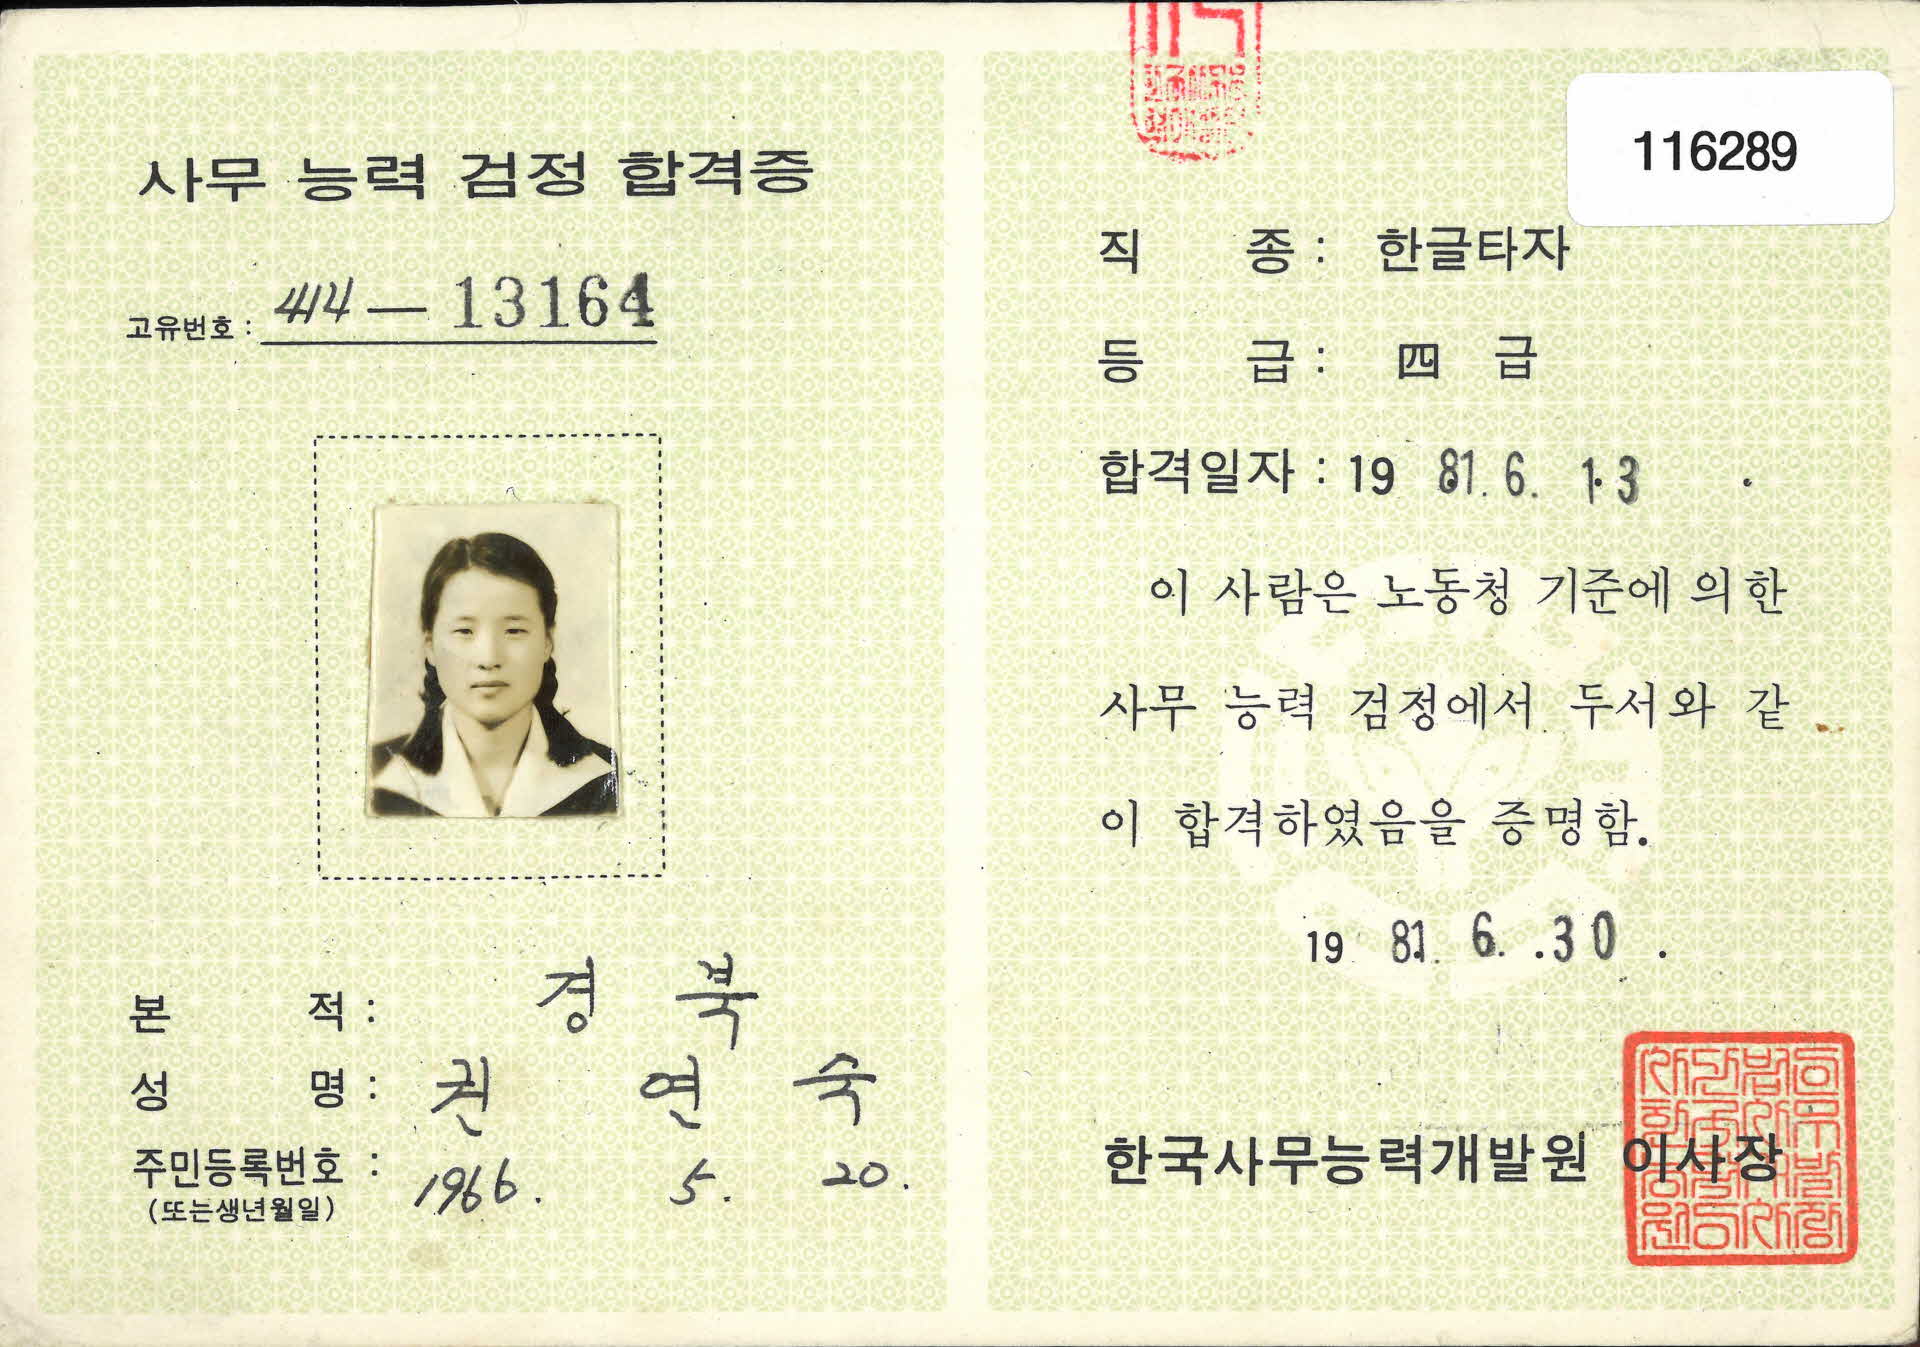 사무 능력 검정 합격증
고유번호 : 414 — 13164
본 적 : 경 북
성 명 : 권 연 숙
주민등록번호 : 1966. 5. 20.
(또는생년월일)
116289
직 종 : 한글타자
등 급 : 四 급
합격일자 : 19 81. 6. 13 .
이 사람은 노동청 기준에 의한
사무 능력 검정에서 두서와 같
이 합격하였음을 증명함.
19 81. 6. .30 .
한국사무능력개발원 이사장